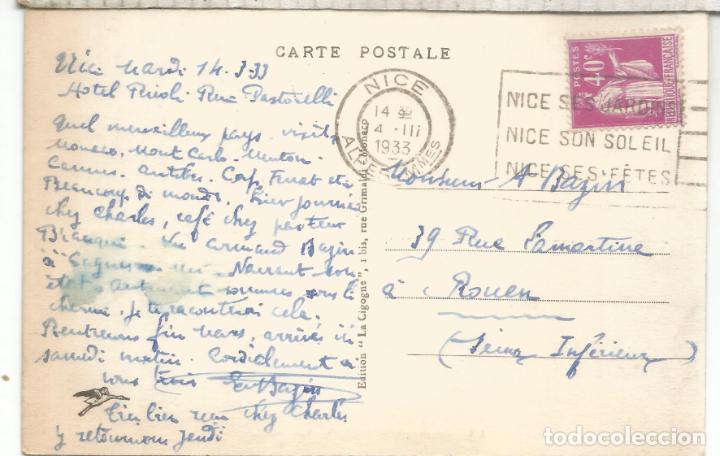 CARTE POSTALE
Nice mardi 14.3.33
Hotel Rivoli Rue Pastorelli
Quel merveilleux pays. visité
Monaco, Mont Carlo. Menton
Cannes. Antibes. Cap Ferrat etc
Beaucoup de monde.
chez Charles, café chez pasteur
Armand Bazin
à Cagnes
je te raconterai cela.
Rentrerons fin mars, arrivés ici
samedi matin. Cordialement à
vous trois E. Bazin
bien reçu chez Charles
y retournons jeudi
Edition "La Cigogne", 1 bis, rue Grimaldi - Monaco
NICE
14 30
4 -III
1933
ALPES MARITIMES
NICE SES JARDINS
NICE SON SOLEIL
NICE SES FÊTES
POSTES
40c
REPUBLIQUE FRANÇAISE
Monsieur A Bazin
39 Rue Lamartine
à Rouen
(Seine Inférieure)
todocoleccion